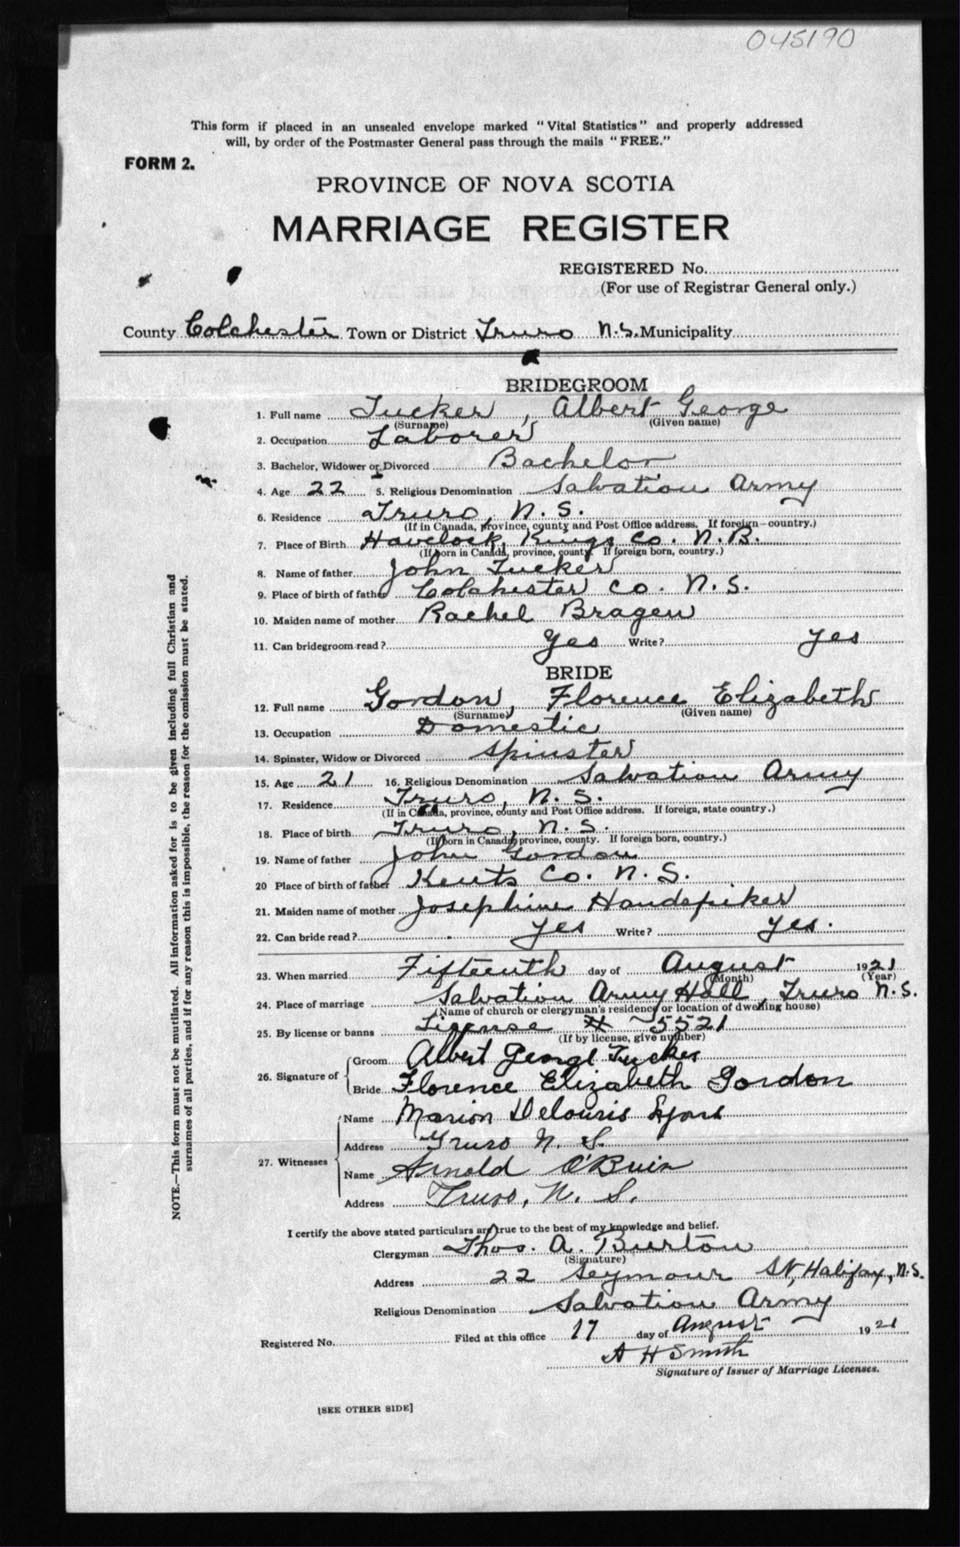 045190
This form if placed in an unsealed envelope marked "Vital Statistics" and properly addressed
will, by order of the Postmaster General pass through the mails "FREE."
FORM 2.
PROVINCE OF NOVA SCOTIA
MARRIAGE REGISTER
REGISTERED No.
(For use of Registrar General only.)
County Colchester Town or District Truro N.S. Municipality
BRIDEGROOM
1. Full name Tucker, Albert George
(Surname) (Given name)
2. Occupation Laborer
3. Bachelor, Widower or Divorced Bachelor
4. Age 22 5. Religious Denomination Salvation Army
6. Residence Truro, N.S.
(If in Canada, province, county and Post Office address. If foreign—country.)
7. Place of Birth Havelock, Kings Co. N.B.
(If born in Canada, province, county. If foreign born, country.)
8. Name of father John Tucker
9. Place of birth of father Colchester Co. N.S.
10. Maiden name of mother Rachel Bragen
11. Can bridegroom read? Yes Write? Yes
BRIDE
12. Full name Gordon, Florence Elizabeth
(Surname) (Given name)
13. Occupation Domestic
14. Spinster, Widow or Divorced Spinster
15. Age 21 16. Religious Denomination Salvation Army
17. Residence Truro, N.S.
(If in Canada, province, county and Post Office address. If foreign, state country.)
18. Place of birth Truro, N.S.
(If born in Canada, province, county. If foreign born, country.)
19. Name of father John Gordon
20 Place of birth of father Kents Co. N.S.
21. Maiden name of mother Josephine Handspiker
22. Can bride read? Yes Write? Yes.
23. When married Fifteenth day of August 1921
(Month) (Year)
24. Place of marriage Salvation Army Hall, Truro N.S.
(Name of church or clergyman's residence or location of dwelling house)
25. By license or banns License # 5521
(If by license, give number)
26. Signature of
Groom Albert George Tucker
Bride Florence Elizabeth Gordon
27. Witnesses
Name Marion Delouris
Address Truro N. S.
Name Arnold O'Brien
Address Truro, N. S.
I certify the above stated particulars are true to the best of my knowledge and belief.
Clergyman Thos. A. Burton
(Signature)
Address 22 Seymour St, Halifax, N.S.
Religious Denomination Salvation Army
Registered No. Filed at this office 17 day of August 1921
A H Smith
Signature of Issuer of Marriage Licenses.
[SEE OTHER SIDE]
NOTE.—This form must not be mutilated. All information asked for is to be given including full Christian and
surnames of all parties, and if for any reason this is impossible, the reason for the omission must be stated.